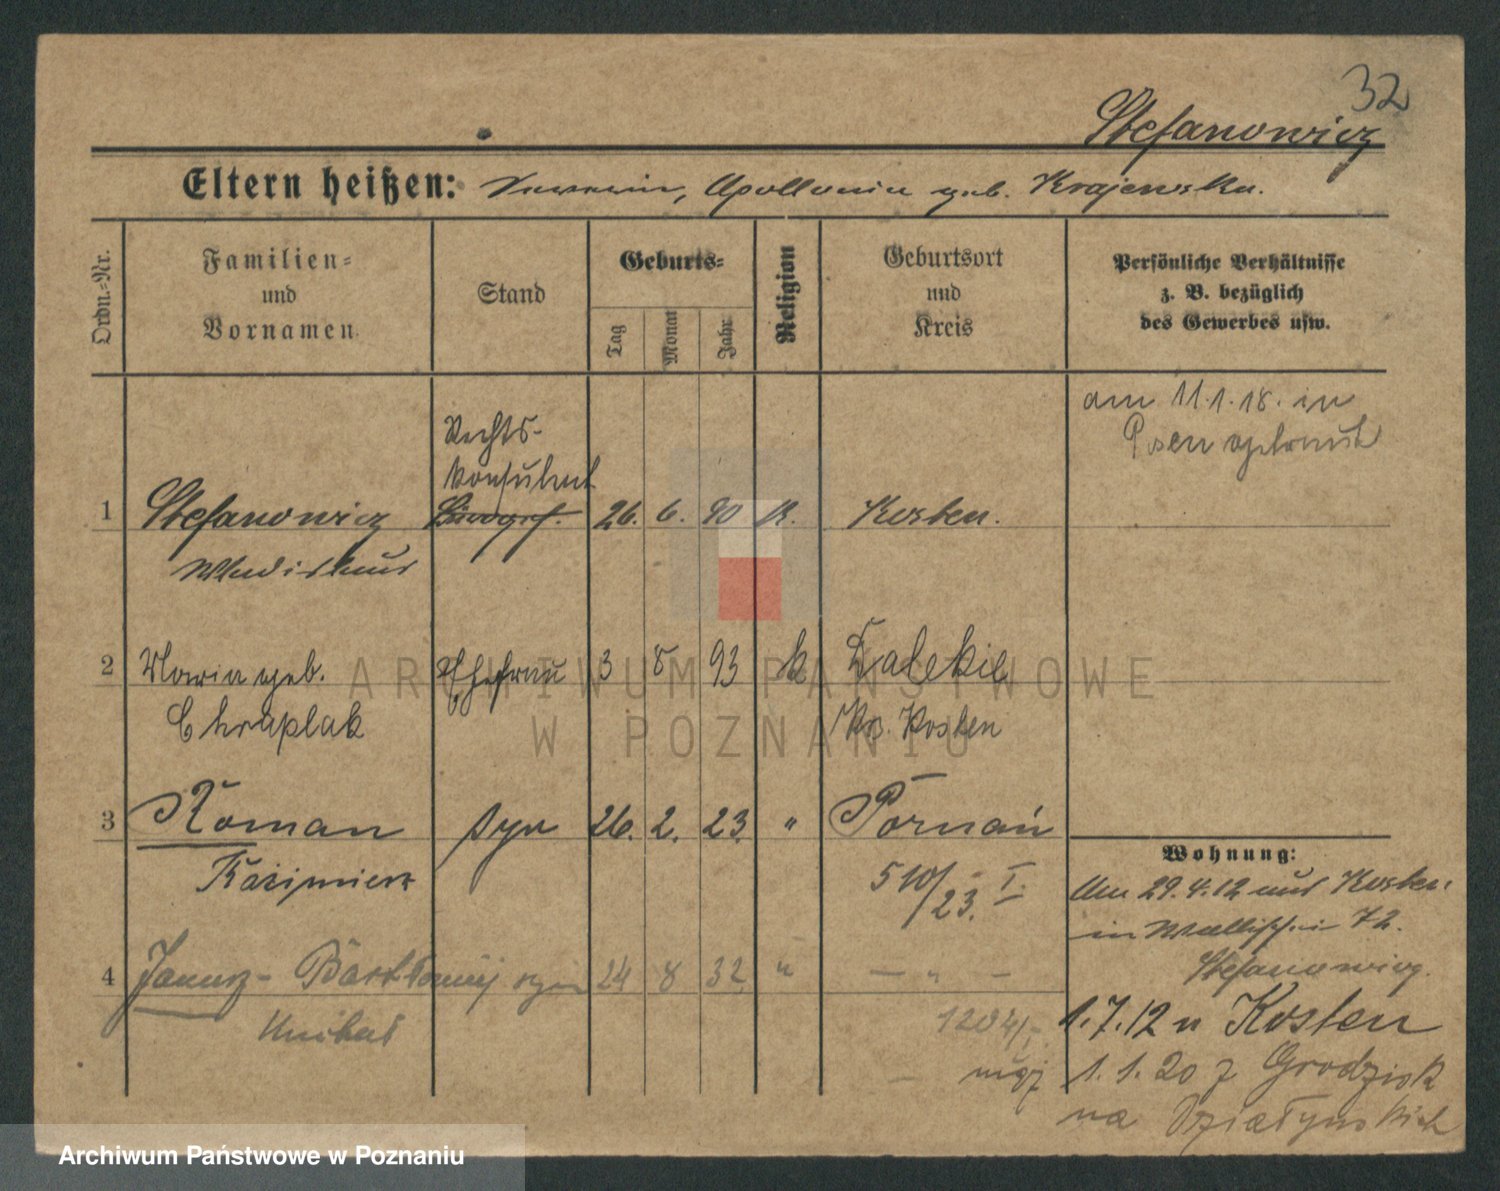 32
Stefanowicz
Eltern heißen: Apollonia geb. Krajewska.
Ordn.-Nr.
Familien-
und
Vornamen.
Stand
Geburts-
Tag
Monat
Jahr
Religion
Geburtsort
und
Kreis
Persönliche Verhältnisse
z. B. bezüglich
des Gewerbes usw.
am 11.1.18. in
Posen getraut
Rechts-
konsulent
1 Stefanowicz Bürogeh. 26. 6. 90 K. Kosten.
Wladislaus
2 Maria geb. Ehefrau 3 8 93 k Dalekie
Chraplak Kr. Kosten
3 Roman syn 26. 2. 23. " Poznań
Kazimierz
510/23. I.
4 Janusz- Bartłomiej syn 24 8 32 " — " —
Michał
1204/
Wohnung:
Am 29.4.12 aus Kosten
in Wallischei 72.
Stefanowicz.
1.7.12 n Kosten
1.1.20 z Grodzisk
na Działyńskich
ARCHIWUM PAŃSTWOWE
W POZNANIU
Archiwum Państwowe w Poznaniu